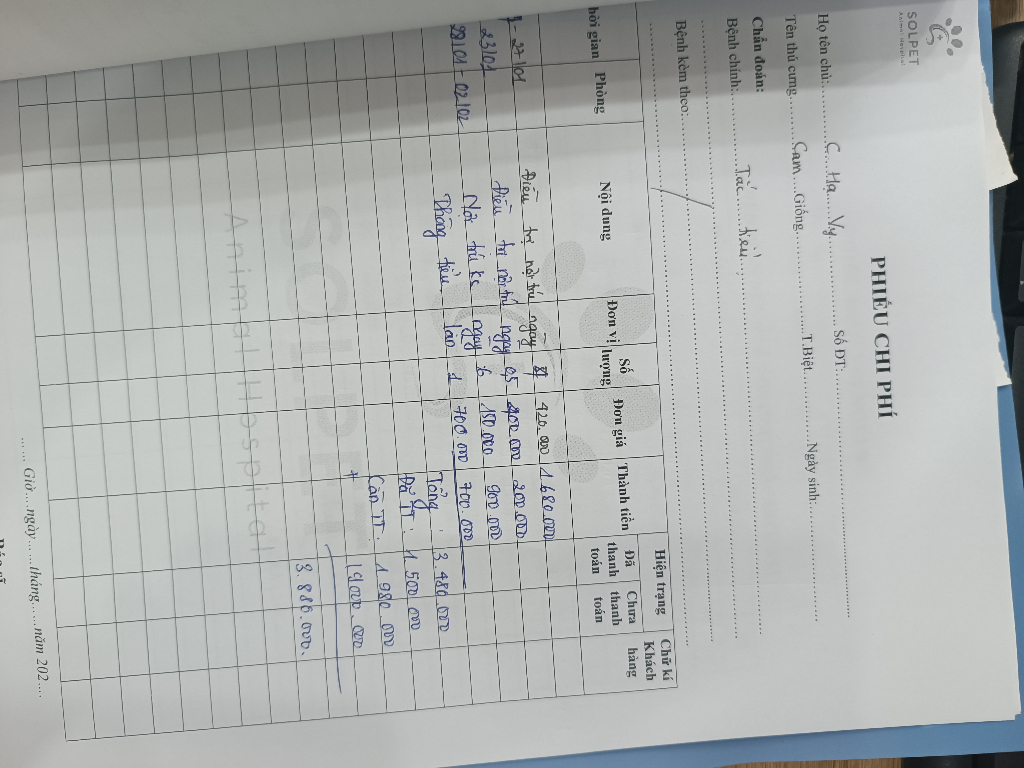 SOLPET
Animal Hospital
PHIẾU CHI PHÍ
Họ tên chủ: C. Hạ Vy Số ĐT:
Tên thú cưng Cam Giống T.Biệt Ngày sinh:
Chẩn đoán:
Bệnh chính: Tắc tiểu
Bệnh kèm theo:
hời gian Phòng Nội dung Đơn vị Số lượng Đơn giá Thành tiền Hiện trạng Chữ kí Khách hàng
Đã thanh toán Chưa thanh toán
- 21/01 Điều trị nội trú ngày 4 420.000 1.680.000
23/01 Điều trị nội trú ngày 0,5 400.000 200.000
28/01 - 02/02 Nội trú ks ngày 6 150.000 900.000
Thông tiểu lần 1 700.000 700.000
Tổng: 3.480.000
Đã TT: 1.500.000
Cần TT: 1.980.000
+ 1.900.000
3.880.000.
SOLPET
Animal Hospital
Giờ ngày tháng năm 202
Bác sĩ